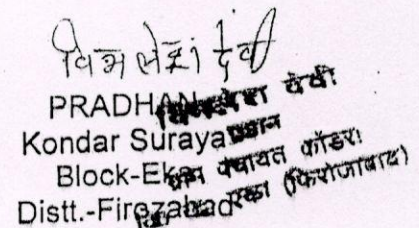 देवी
PRADHAN
Kondar Suraya
Block-Eka
Distt.-Firozabad
देवी
प्रधान
ग्राम पंचायत कोंडर
एका (फिरोजाबाद)